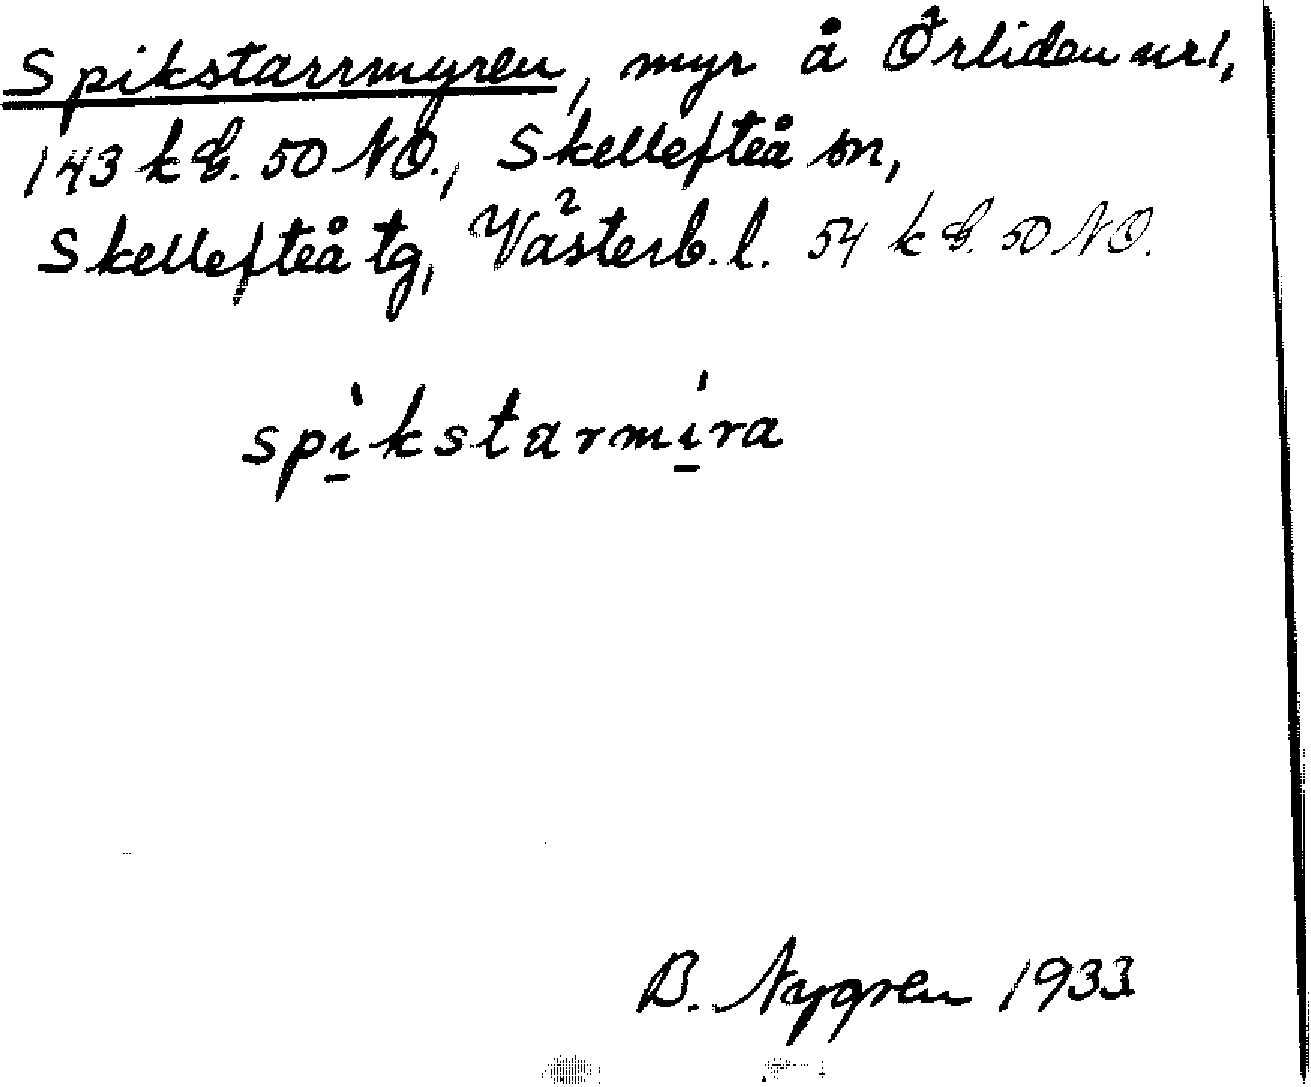 Spikstarrmyren, myr å Örliden nr 1,
143 k G. 50 NO., Skellefteå sn,
Skellefteå tg, Västerb. l. 54 k G. 50 NO.
spikstarmira
B. Nygren 1933